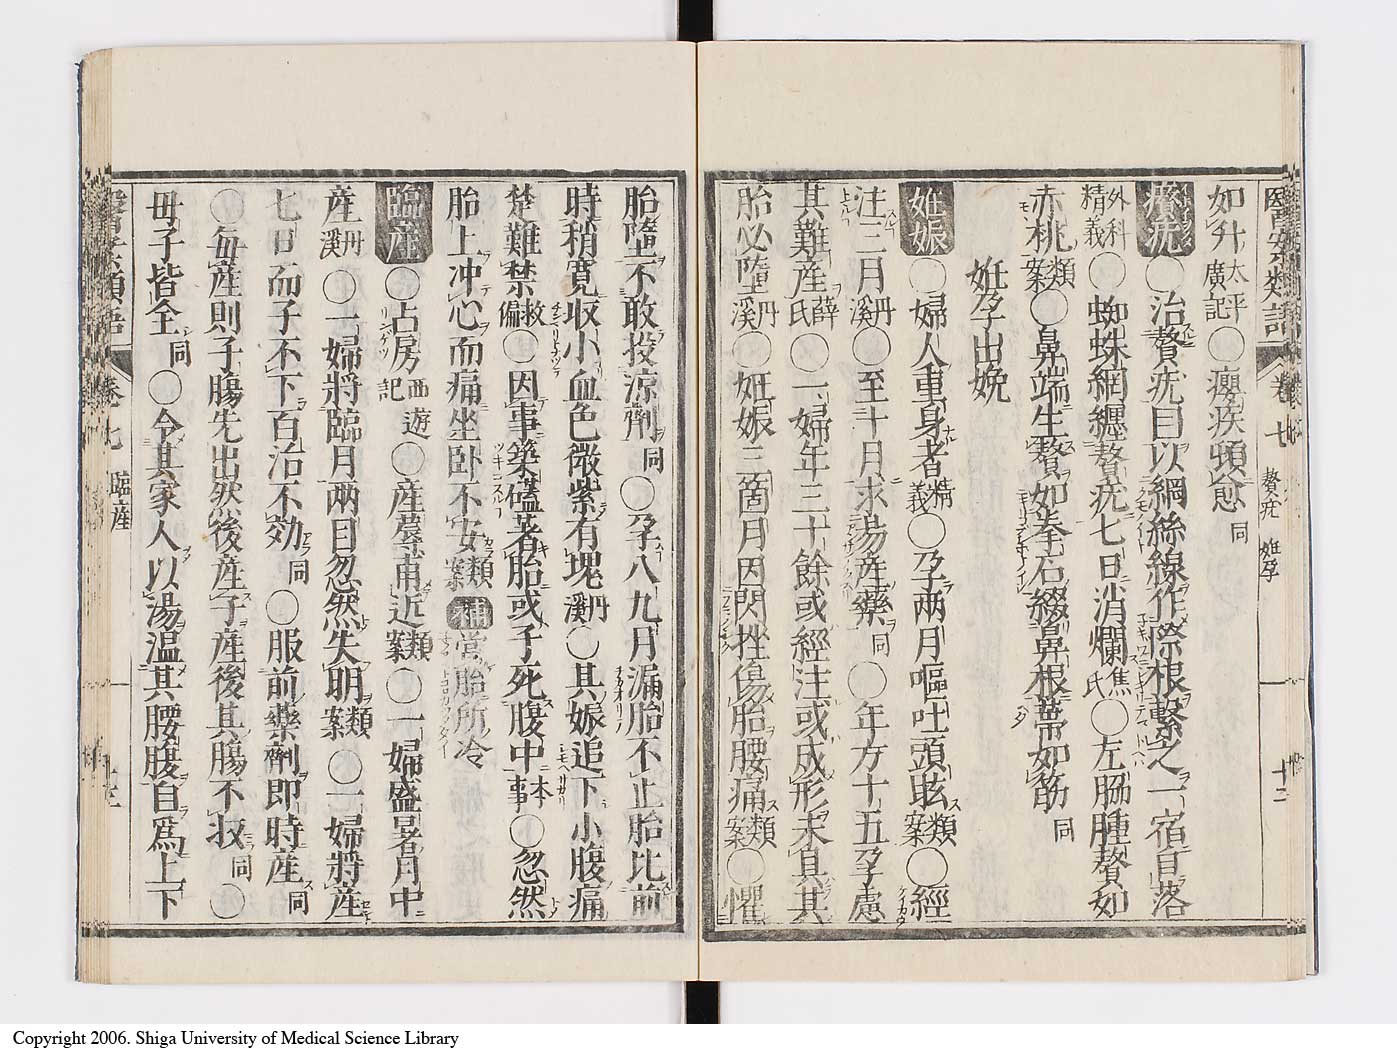 醫案類語 卷七 贅疣 姙孕 十二
如升太平廣記〇癭疾頓愈同
瘊疣〇治贅疣目以網絲線作際根繫之一宿自落
外科精義〇蜘蛛網纏贅疣七日消爛焦氏〇左脇腫贅如
赤桃類案〇鼻端生贅如拳石綴鼻根蔕如筋同
姙孕出娩
姙娠〇婦人重身者精義〇孕兩月嘔吐頭眩類案〇經
注三月丹溪〇至十月求易産藥同〇年方十五孕慮
其難産薛氏〇一婦年三十餘或經注或成形未具其
胎必墮丹溪〇姙娠三箇月因閃挫傷胎腰痛類案〇懼
胎墮不敢投涼劑同〇孕八九月漏胎不止胎比前
時稍寛收小血色微紫有塊丹溪〇其娠追下小腹痛
楚難禁救偏〇因事築磕著胎或子死腹中本事〇忽然
胎上冲心而痛坐卧不安類案補當胎所冷
臨産〇占房西遊記〇産蓐甫近類案〇一婦盛暑月中
産丹溪〇一婦將臨月兩目忽然失明類案〇一婦將産
七日而子不下百治不効同〇服前藥劑即時産同
〇毎産則子腸先出然後産子産後其腸不收同〇
母子皆全同〇令其家人以湯温其腰腹自爲上下
卷七 臨産
Copyright 2006. Shiga University of Medical Science Library